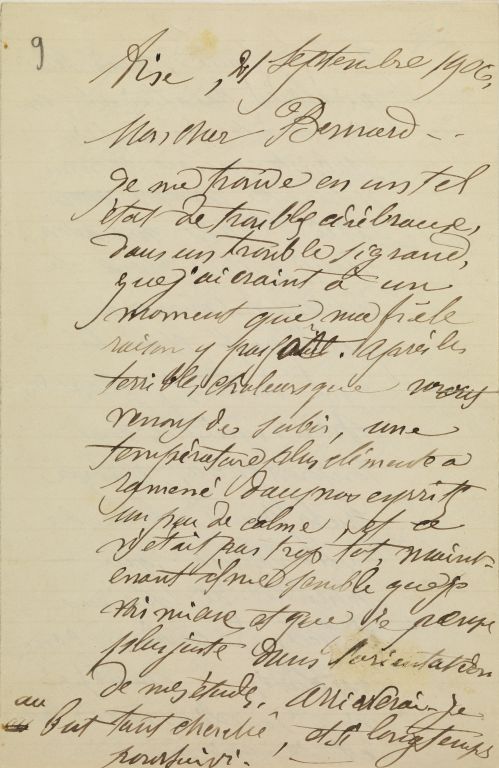 9
Aix, 21 Septembre 1906,
Mon cher Bernard
Je me trouve en un tel
état de troubles cérébraux,
dans un trouble si grand,
que j'ai craint à un
moment que ma frêle
raison y passât. Après les
terribles chaleurs que nous
venons de subir, une
température plus clémente a
ramené dans nos esprits
un peu de calme, et ce
n'était pas trop tôt, maint-
enant il me semble que je
vois mieux et que je pense
plus juste dans l'orientation
de mes études. Arriverai-je
au but tant cherché, et si longtemps
poursuivi.